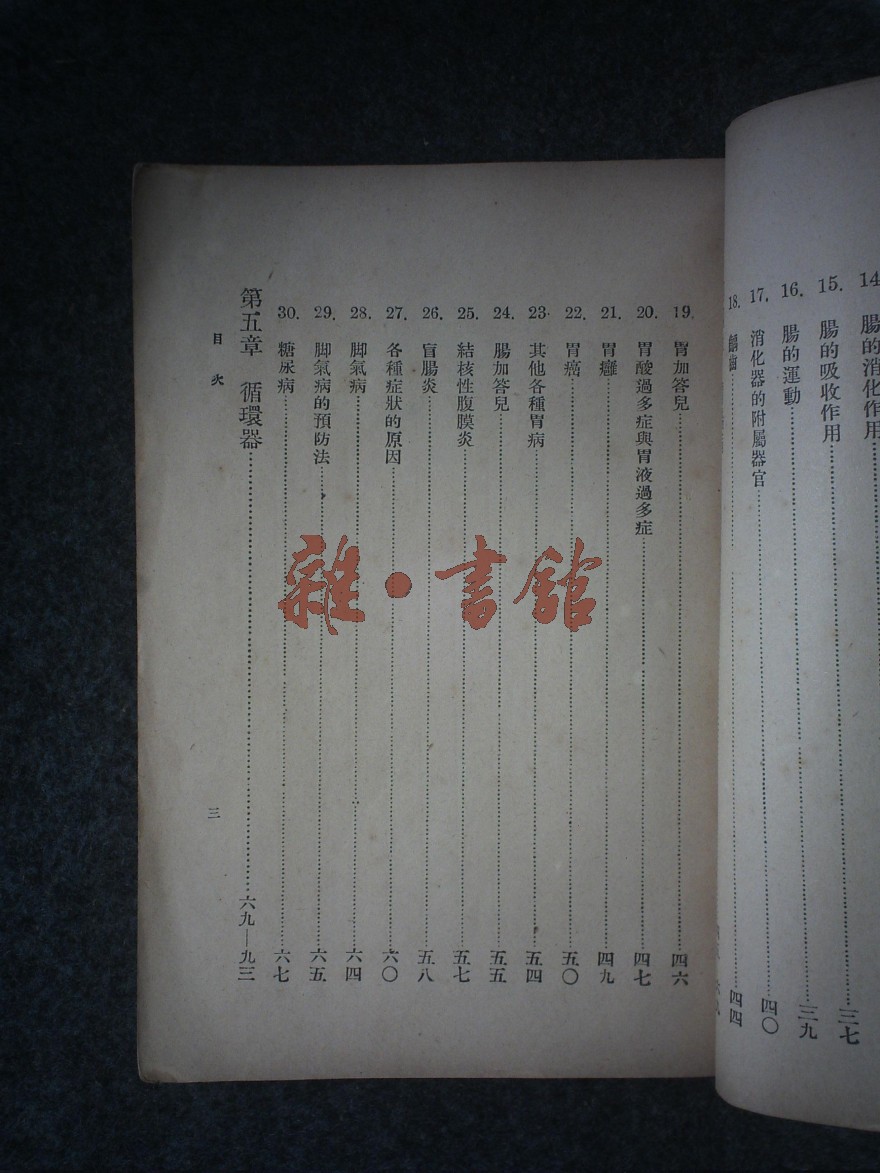 14
腸的消化作用
15. 腸的吸收作用……三七
16. 腸的運動……三九
17. 消化器的附屬器官……四〇
18. 齲齒……四四
19. 胃加答兒……四六
20. 胃酸過多症與胃液過多症……四七
21. 胃癰……四九
22. 胃癌……五〇
23. 其他各種胃病……五四
24. 腸加答兒……五五
25. 結核性腹膜炎……五七
26. 盲腸炎……五八
27. 各種症狀的原因……六〇
28. 脚氣病……六四
29. 脚氣病的預防法……六五
30. 糖尿病……六七
第五章 循環器……六九—九三
目次
三
雜·書館